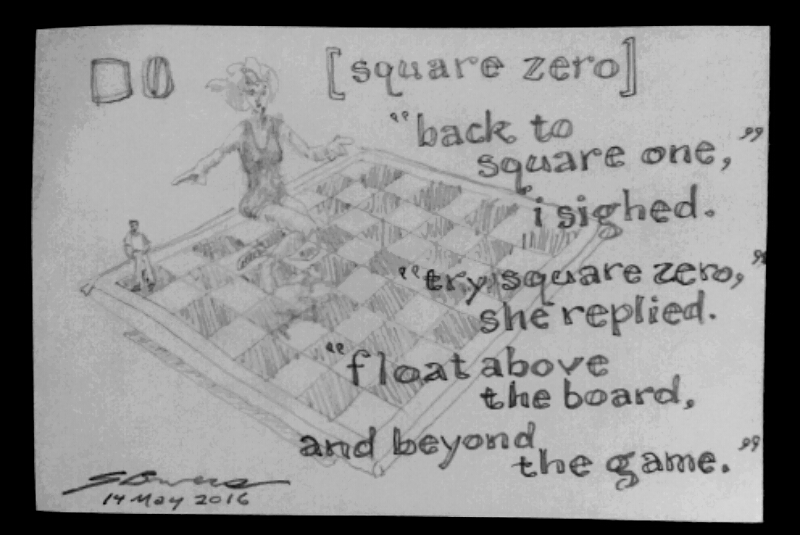 [square zero]
“back to
square one,”
i sighed.
“try square zero,”
she replied.
“float above
the board,
and beyond
the game.”
14 May 2016